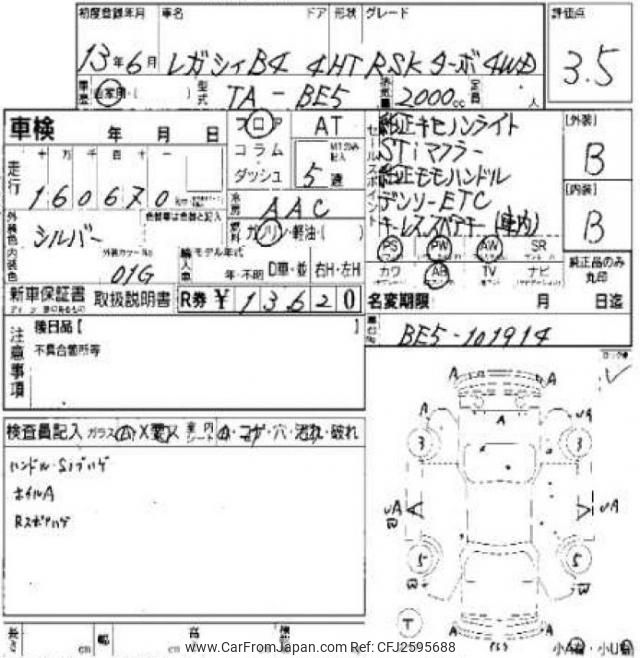 初度登録年月 車名 ドア 形状 グレード 評価点
13年6月 レガシィB4 4HT RSKターボ4WD 3.5
車歴 自家用・( ) 型式 TA-BE5 排気量 2000cc 定員 人
車検 年 月 日 フロア AT 純正キセノンライト [外装]
コラム STiマフラー B
走行 十 万 千 百 十 一 ダッシュ 5速 純正モモハンドル
160670km 冷房 AAC デンソーETC [内装]
外装色 シルバー 燃料 ガソリン・軽油・( ) キーレス スペアキー(車内) B
色替車は色替と記入
外装カラーNo 01G 輸入車 モデル年式 年・不明 D車・並 右H・左H PS PW AW SR
内装色 カワ AB TV ナビ 純正品のみ丸印
新車保証書 取扱説明書 R券 ¥13620 名変期限 月 日迄
BE5-101914
注意事項 後日品【 】
不具合箇所等
検査員記入 ガラス 室内シート ・コゲ・穴・汚れ・破れ
ハンドル・Sノブハゲ
ホイルA
Rスポアハゲ
A A
A A UA
3 3
UA UA
5 5
T A A
長さ cm 幅 cm 高
www.CarFromJapan.com Ref: CFJ2595688
小A ・小U